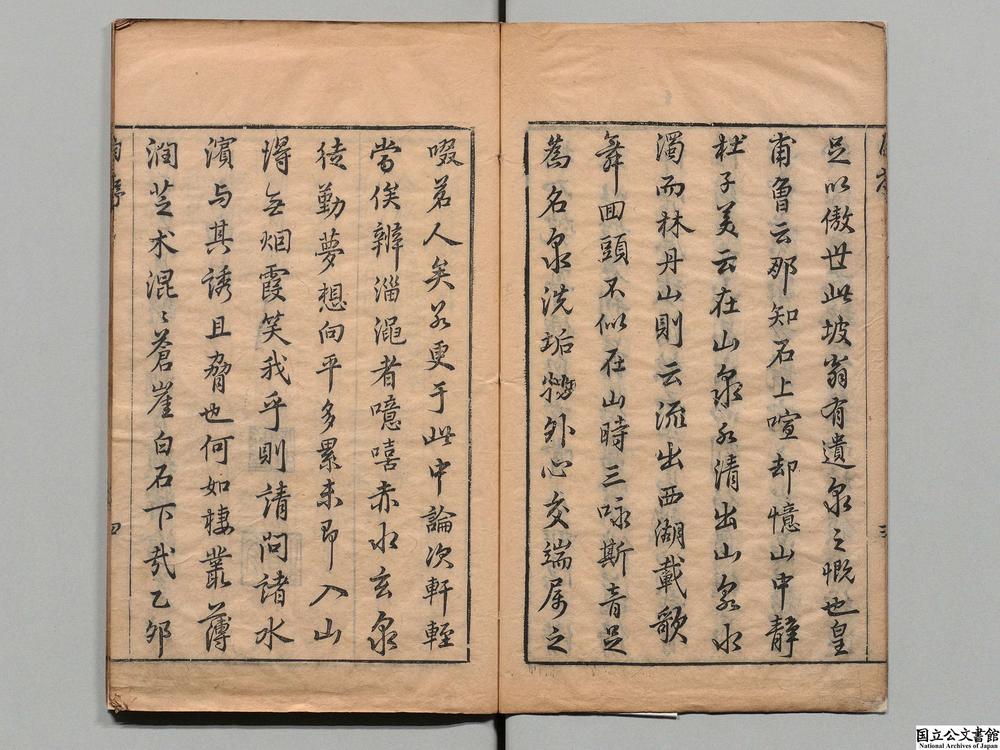 足以傲世此坡翁有遺泉之慨也皇
甫曾云那知石上喧却憶山中靜
杜子美云在山泉水清出山泉水
濁而林丹山則云流出西湖載歌
舞回頭不似在山時三咏斯言足
為名泉洗垢物外心交端属之
啜茗人矣若更于此中論次軒輊
當俟辨淄澠者噫嘻赤水玄泉
徒勤夢想向平多累未即入山
得無烟霞笑我乎則請問諸水
濱与其誘且脅也何如棲叢薄
澗芝术混〻蒼崖白石下哉乙卯
三
四
国立公文書館
National Archives of Japan